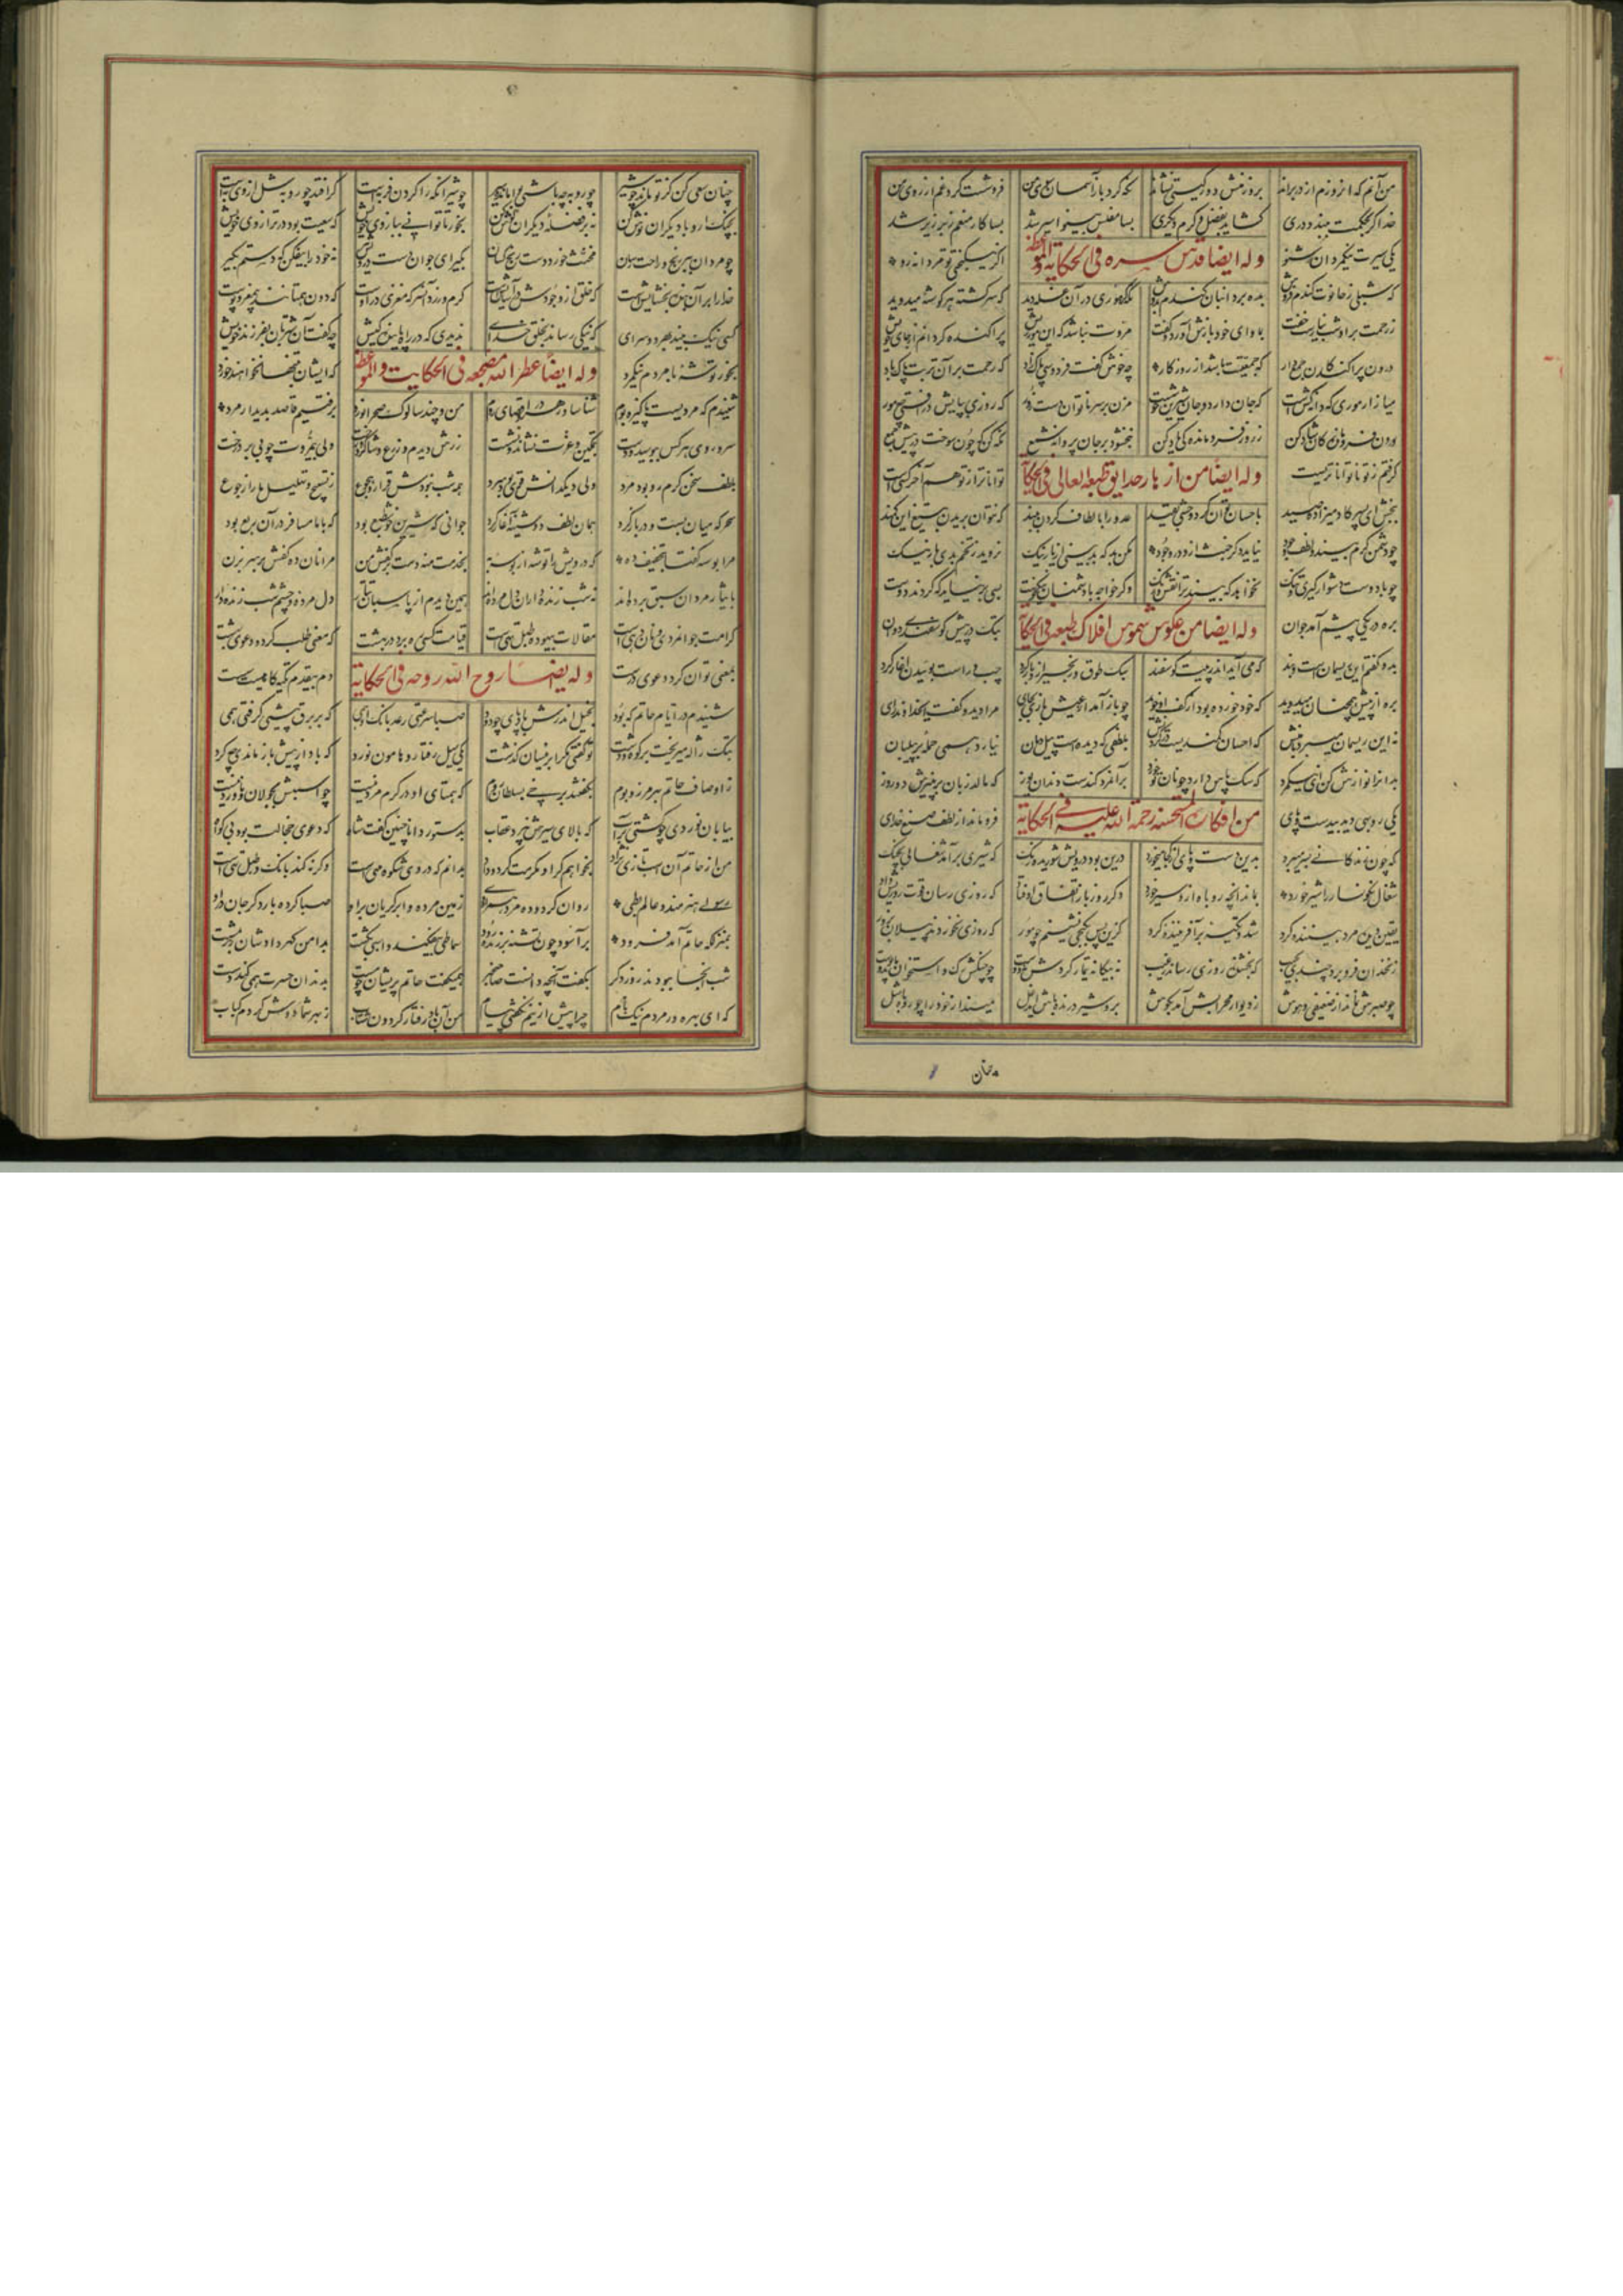 من آنم که آن روزم از در براند بروز منش دور گیتی نشاند نگه کرد باز آسمان سوی من فروشست گرد غم از روی من
خدا گر بحکمت ببندد دری گشاید بفضل و کرم دیگری بسا مفلس بینوا سیر شد بسا کار منعم زبر زیر شد
یکی سیرت نیکمردان شنو اگر نیکبختی تو مردانه رو
وله ایضا قدس سره فی الحکایة والموعظة
که شبلی ز حانوت گندم فروش بده برد انبان گندم بدوش نگه کرد موری در آن غله دید که سرگشته هر گوشه میدوید
ز رحمت برو شب نیارست خفت بماوای خود بازش آورد و گفت مروت نباشد که این مور ریش پراکنده گردانم از جای خویش
درون پراکندگان جمع دار که جمعیتت باشد از روزگار چه خوش گفت فردوسی پاکزاد که رحمت بر آن تربت پاک باد
میازار موری که دانه‌کش است که جان دارد و جان شیرین خوش است مزن بر سر ناتوان دست زور که روزی بپایش درافتی چو مور
درون فروماندگان شاد کن ز روز فروماندگی یاد کن نبخشود بر جان پروانه شمع نگه کن که چون سوخت در پیش جمع
گرفتم ز تو ناتوان‌تر بسیست تواناتر از تو هم آخر کسی است
وله ایضا من ازهار حدایق طبعه العالی فی الحکایة
ببخش ای پسر کادمیزاده صید باحسان توان کرد و وحشی بقید عدو را بالطاف گردن ببند که نتوان بریدن بتیغ این کمند
چو دشمن کرم بیند و لطف و جود نیاید دگر خبث ازو در وجود مکن بد که بد بینی از یار نیک نروید ز تخم بدی بار نیک
چو با دوست دشوار گیری و تنگ نخواهد که بیند ترا نقش و رنگ وگر خواجه با دشمنان نیکخوست بسی برنیاید که گردند دوست
بره در یکی پیشم آمد جوان بتک در پیش گوسفندی دوان
وله ایضا من عکوس شموس افلاک طبعه فی الحکایة
بدو گفتم این ریسمان است و بند که می آید اندر پیت گوسفند سبک طوق و زنجیر ازو باز کرد چپ و راست پوئیدن آغاز کرد
بره از پیش همچنان میدوید که خود خورده بود از کف او خوید چو باز آمد از عیش و بازی بجای مرا دید و گفت ای خداوند رای
نه این ریسمان میبرد با منش که احسان کمندیست در گردنش بلطفی که دیده است پیل دمان نیارد همی حمله بر پیلبان
بدانرا نوازش کن ای نیکمرد که سگ پاس دارد چو نان تو خورد بر آنمرد کند است دندان یوز که مالد زبان بر پنیرش دو روز
یکی روبهی دید بی دست و پای فروماند از لطف و صنع خدای
من افکارات الحسنة رحمة الله علیه فی الحکایة
که چون زندگانی بسر میبرد بدین دست و پای از کجا میخورد درین بود درویش شوریده رنگ که شیری برآمد شغالی بچنگ
شغال نگونسار را شیر خورد بماند آنچه روباه از او سیر خورد دگر روز باز اتفاق اوفتاد که روزی رسان قوت روزیش داد
یقین دین مرد بیننده کرد شد و تکیه بر آفریننده کرد کزین پس بکنجی نشینم چو مور که روزی نخوردند پیلان بزور
زنخدان فرو برد چندی بجیب که بخشنده روزی رساند ز غیب نه بیگانه تیمار کردش نه دوست چو چنگش رگ و استخوان ماند و پوست
چو صبرش نماند از ضعیفی و هوش ز دیوار محرابش آمد بگوش برو شیر درنده باش ای دغل مینداز خود را چو روباه شل
چنان سعی کن کز تو ماند چو شیر چو روبه چه باشی بوامانده سیر چو شیر آنکه را گردن فربه است گر افتد چو روبه سگ از وی به است
بچنگ آر و با دیگران نوش کن نه بر فضله دیگران گوش کن بخور تا توانی ببازوی خویش که سعیت بود در ترازوی خویش
چو مردان ببر رنج و راحت رسان مخنث خورد دسترنج کسان بگیر ای جوان دست درویش پیر نه خود را بیفکن که دستم بگیر
خدا را بر آن بنده بخشایش است که خلق از وجودش در آسایش است کرم ورزد آنسر که مغزی دروست که دون همتانند بیمغز و پوست
کسی نیک بیند بهر دو سرای که نیکی رساند بخلق خدای
بخور توشه با مردم نیک مرد
وله ایضا عطر الله مضجعه فی الحکایت والموعظة
شنیدم که مردیست پاکیزه بوم شناسا و رهرو در اقصای روم من و چند سالوک صحرا نورد برفتیم قاصد بدیدار مرد
سر و روی هر کس ببوسید و دست بتمکین و عزت نشاند و نشست زرش دیدم و زرع و شاگرد و رخت ولی بیمروت چو بی بر درخت
بلطف سخن گرم رو بود مرد ولی دیگدانش قوی بود سرد همه شب نبودش قرار و هجوع ز تسبیح و تهلیل ما را ز جوع
سحرگه میان بست و در باز کرد همان لطف دوشینه آغاز کرد جوانی که شیرین و خوشطبع بود که با ما مسافر در آن ربع بود
مرا بوسه گفتا بتصحیف ده که درویش را توشه از بوسه به بخدمت منه دست بر کفش من مرا نان ده و کفش بر سر بزن
بایثار مردان سبق برده‌اند نه شب زنده‌داران دل مرده‌اند همین دیدم از پاسبان تتار دل مرده و چشم شب زنده‌دار
کرامت جوانمردی و نان دهی است مقالات بیهوده طبل تهی است قیامت کسی ره برد در بهشت که معنی طلب کرد و دعوی بهشت
بمعنی توان کرد دعوی درست دم بیقدم تکیه‌گاهیست سست
وله ایضا روح الله روحه فی الحکایة
شنیدم در ایام حاتم که بود بخیل اندرش بادپائی چو دود صبا سرعتی رعد بانگ ادهمی که بر برق پیشی گرفتی همی
بتک ژاله میریخت بر کوه و دشت تو گفتی مگر ابر نیسان گذشت یکی سیل رفتار و هامون نورد که باد از پیش باز ماندی چو گرد
ز اوصاف حاتم بهر مرز و بوم بگفتند برخی بسلطان روم که همتای او در کرم مرد نیست چو اسبش بجولان و ناورد نیست
بیابان نوردی چو کشتی بر آب که بالای سیرش نپرد عقاب بدستور دانا چنین گفت شاه که دعوی خجالت بود بی گواه
من از حاتم آن اسب تازی نژاد بخواهم گر او مکرمت کرد و داد بدانم که در وی شکوه مهیست وگر رد کند بانگ طبل تهی است
رسولی هنرمند و عالم بطی روان کرد و ده مرد همراه وی زمین مرده و ابر گریان برو صبا کرده بار دگر جان درو
بمنزلگه حاتم آمد فرود برآسود چون تشنه بر زنده‌رود سماطی بیفکند و اسبی بکشت بدامن گهر دادشان زر بمشت
شب آنجا ببودند روز دگر بگفت آنچه دانست صاحبخبر همیگفت حاتم پریشان چو مست بدندان حسرت همی کند دست
که ای بهره ور مردم نیک نام چرا پیش از اینم نگفتی پیام من آن باد رفتار گردون شتاب ز بهر شما دوش کردم کباب